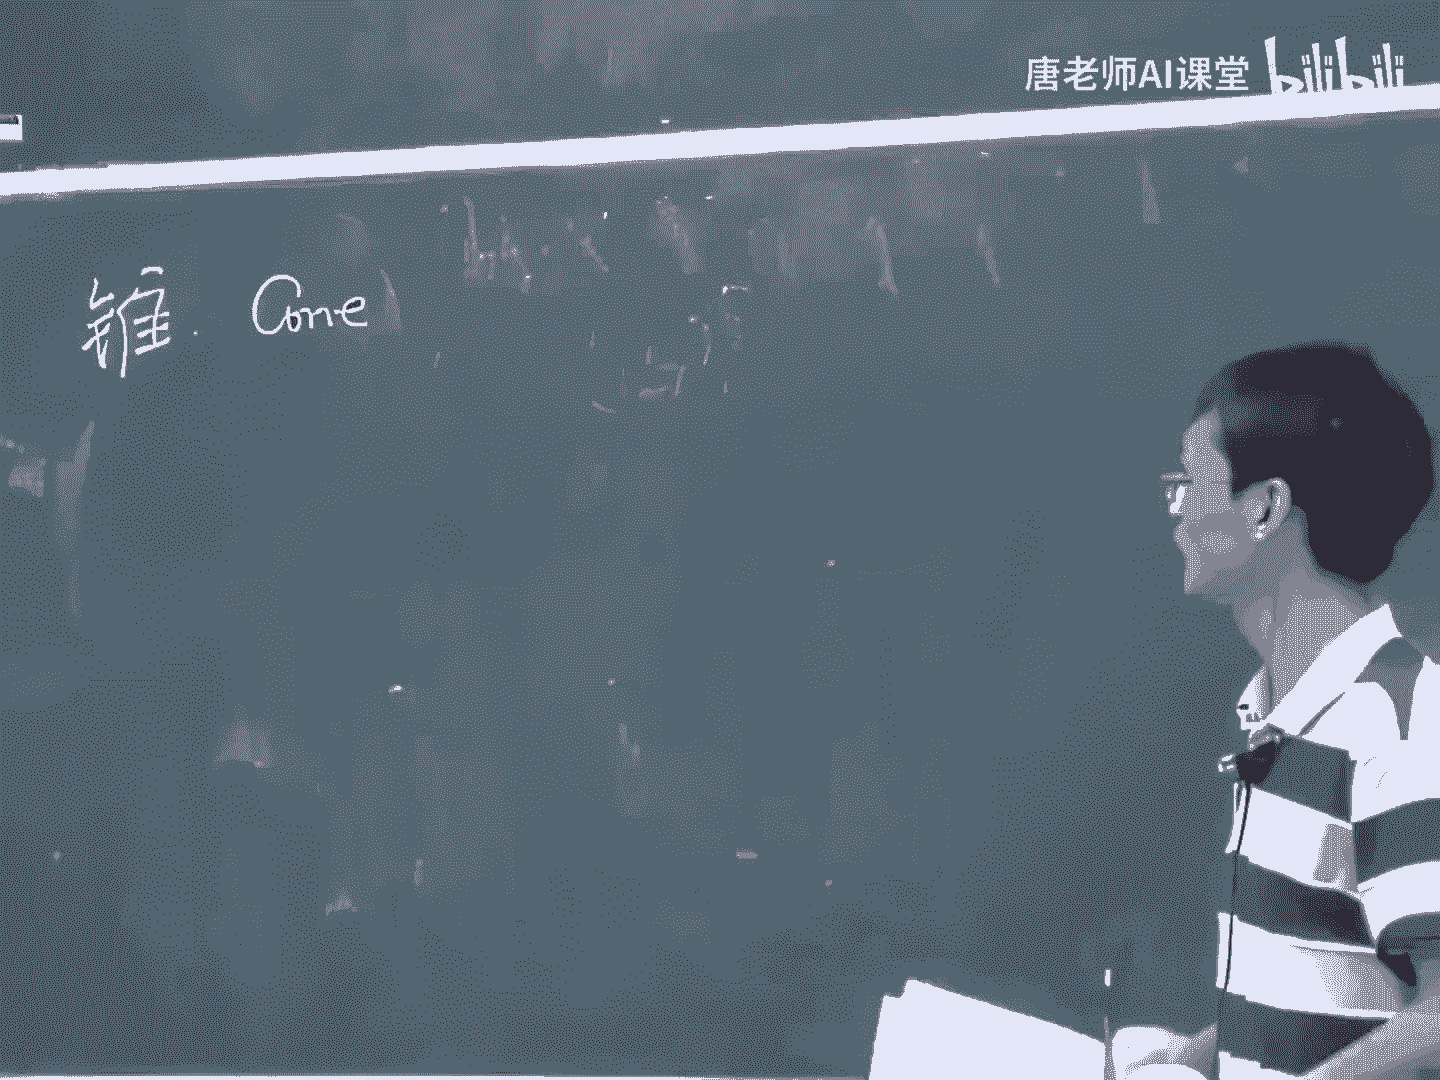 唐老师AI课堂 bilibili
锥. Cone